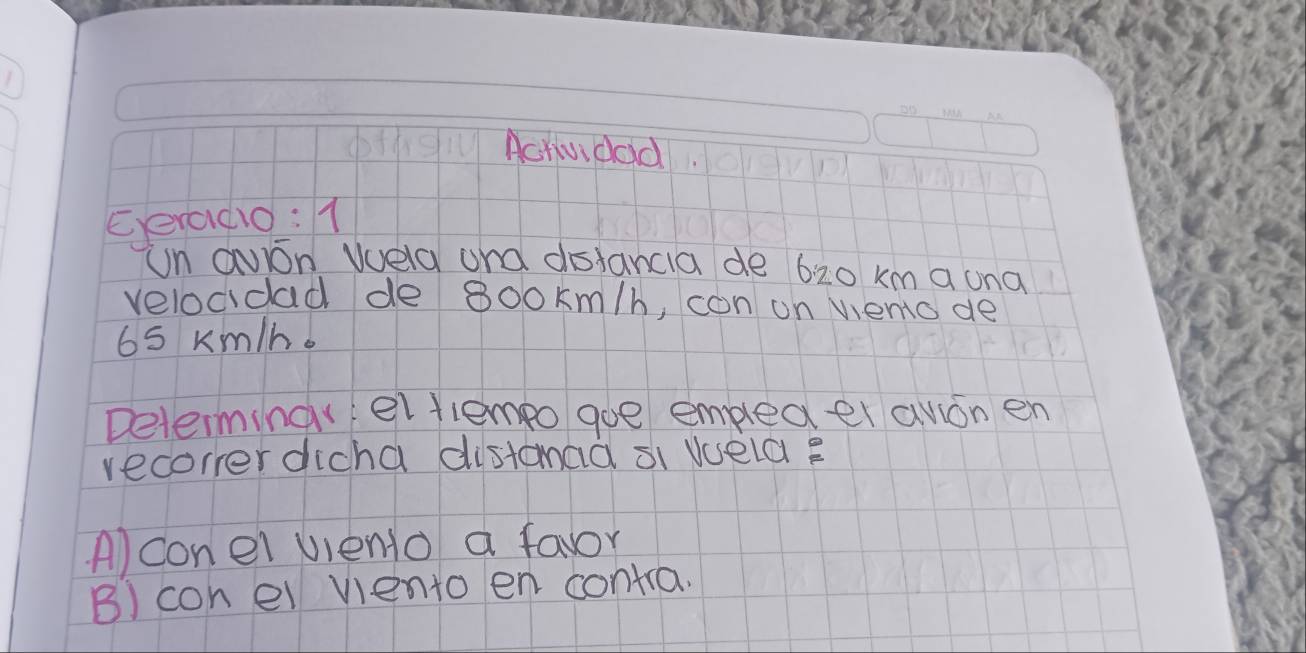 DD MM AA
Actividad.
Ejercicio: 1
Un avión vuela una distancia de 620 km a una
velocidad de 800km/h, con un viento de
65 km/h.
Determinar: el tiempo que emplea el avión en
recorrer dicha distancia si vuela:
A) con el viento a favor
B) con el viento en contra.